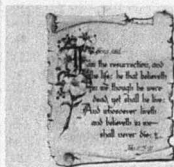 I am the resurrection, and
the life: he that believeth
in me though he were
dead, yet shall he live:
And whosoever liveth
and believeth in me
shall never die: